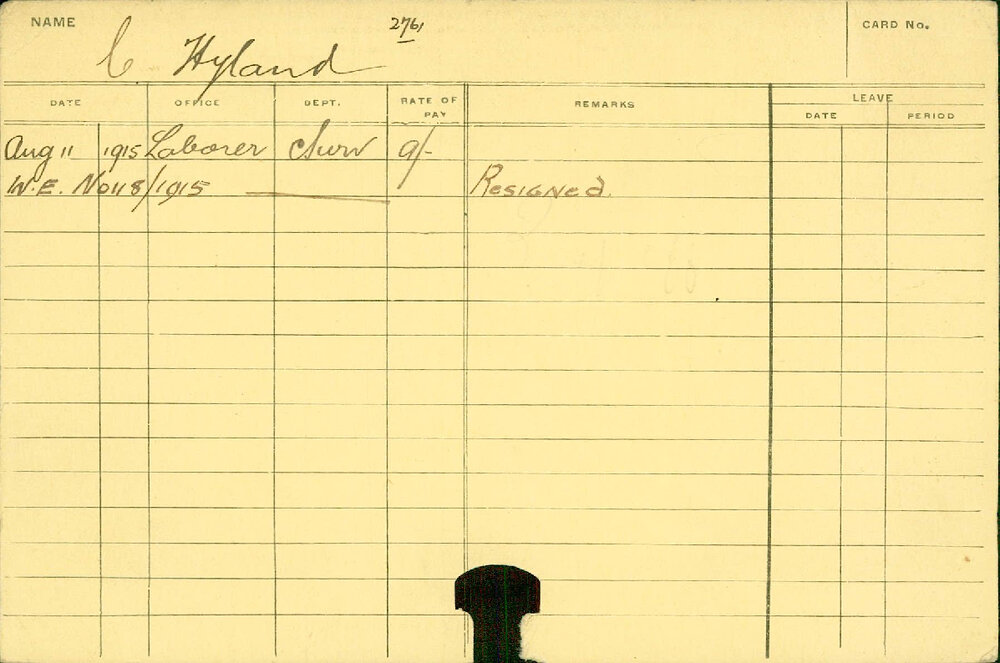 NAME
2761
CARD No.
C. Hyland
DATE OFFICE DEPT. RATE OF PAY REMARKS LEAVE
DATE PERIOD
Aug 11 1915 Laborer Surv 9/-
W.E. Nov 8/1915 Resigned.